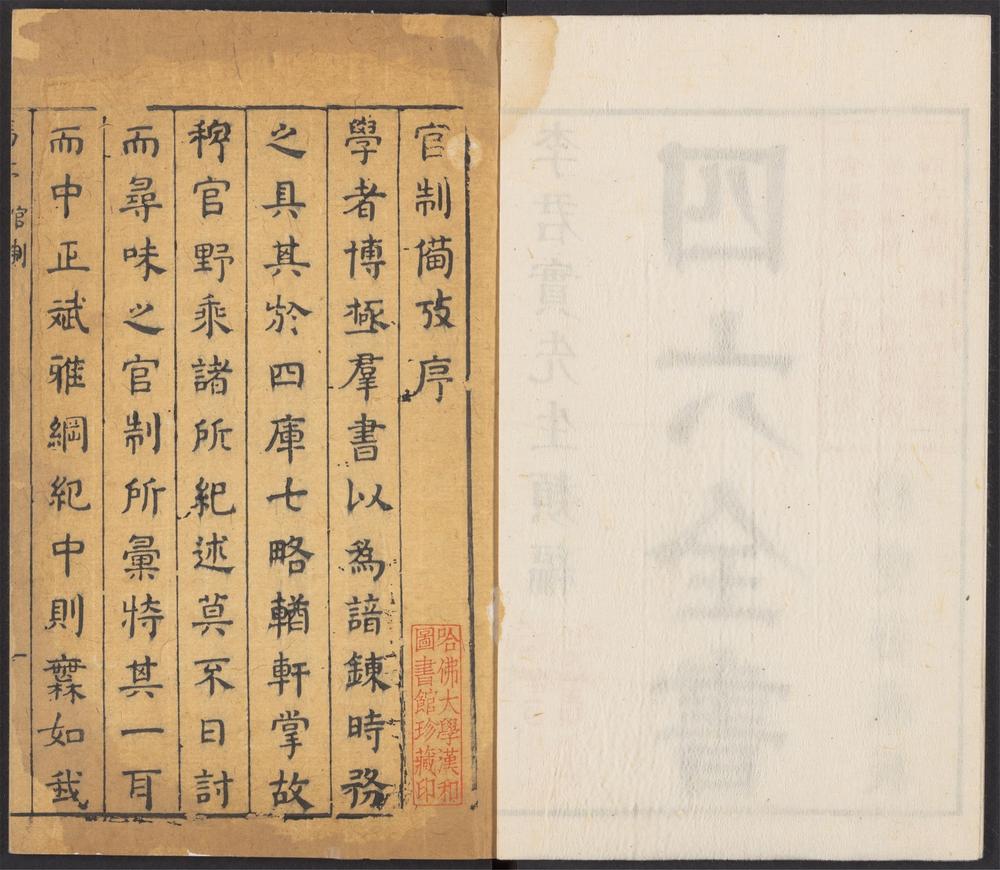 四六全書
李君實先生類編
官制備攷序
哈佛大學漢和
圖書館珍藏印
學者博極羣書以為諳鍊時務
之具其於四庫七略輶軒掌故
稗官野乘諸所紀述莫不日討
而尋味之官制所彙特其一耳
而中正斌雅綱紀中則橆如我
官制